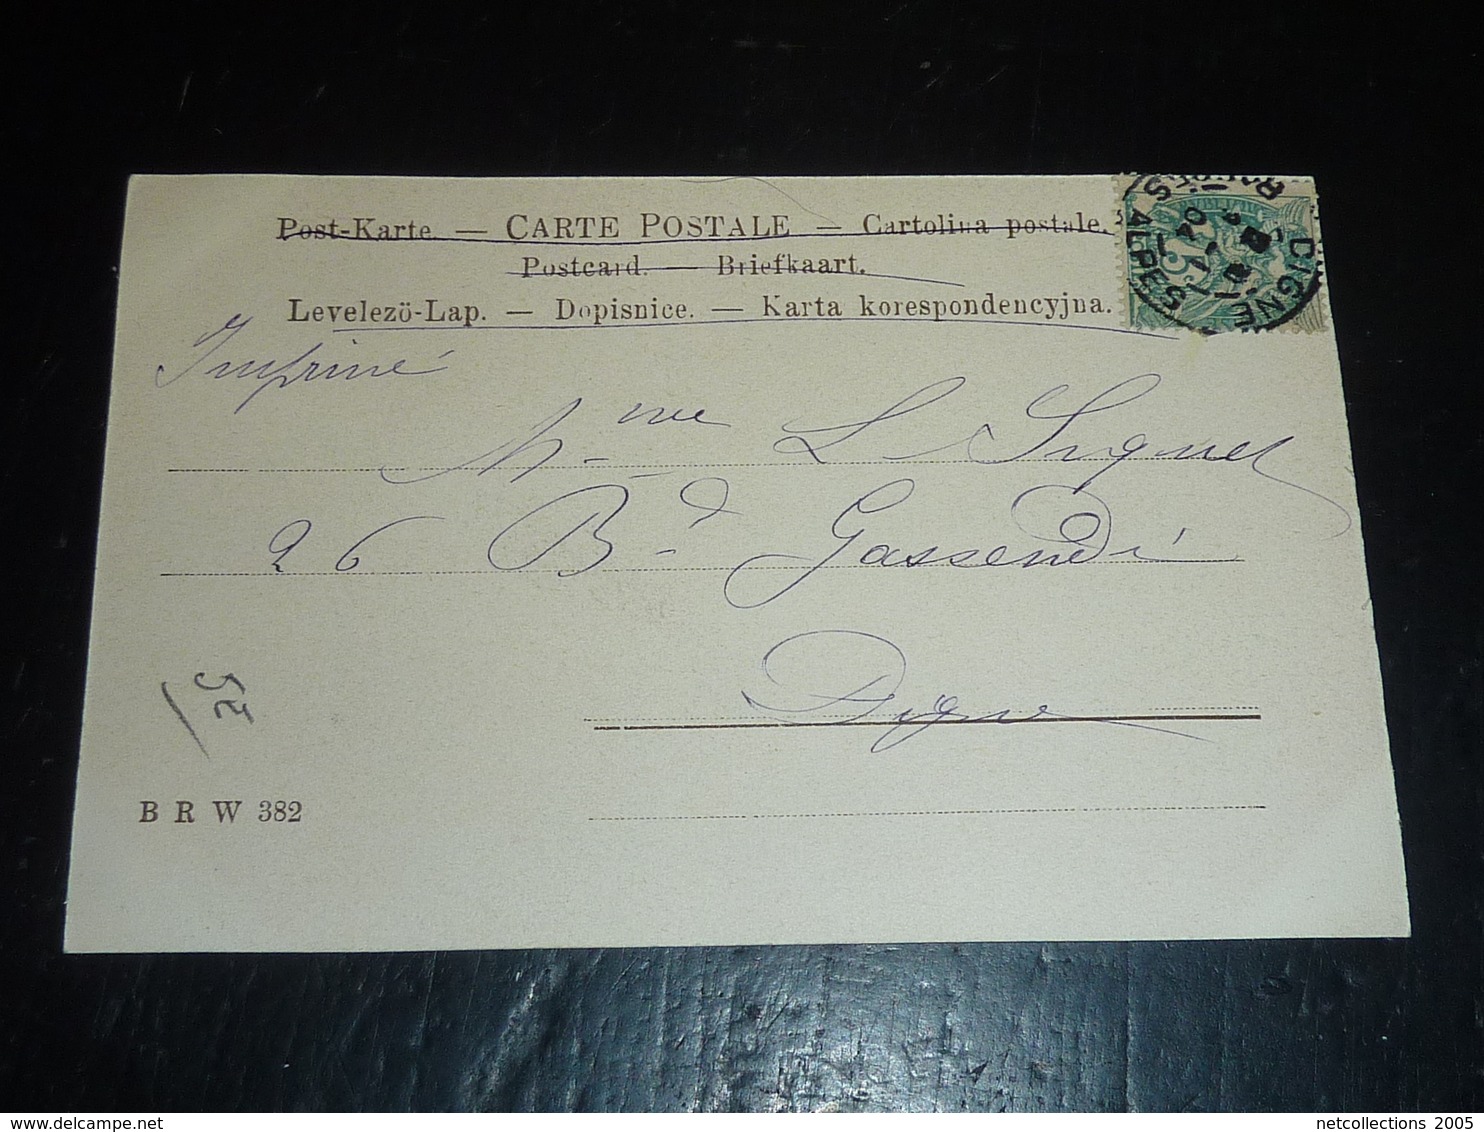 Post-Karte. — CARTE POSTALE — Cartolina postale.
Postcard. — Briefkaart.
Levelezö-Lap. — Dopisnice. — Karta korespondencyjna.
DIGNE
BASSES ALPES
04
5
Imprimé
Mme L Signoret
26 Bd Gassendi
Digne
5E
B R W 382
www.delcampe.net
netcollections 2005